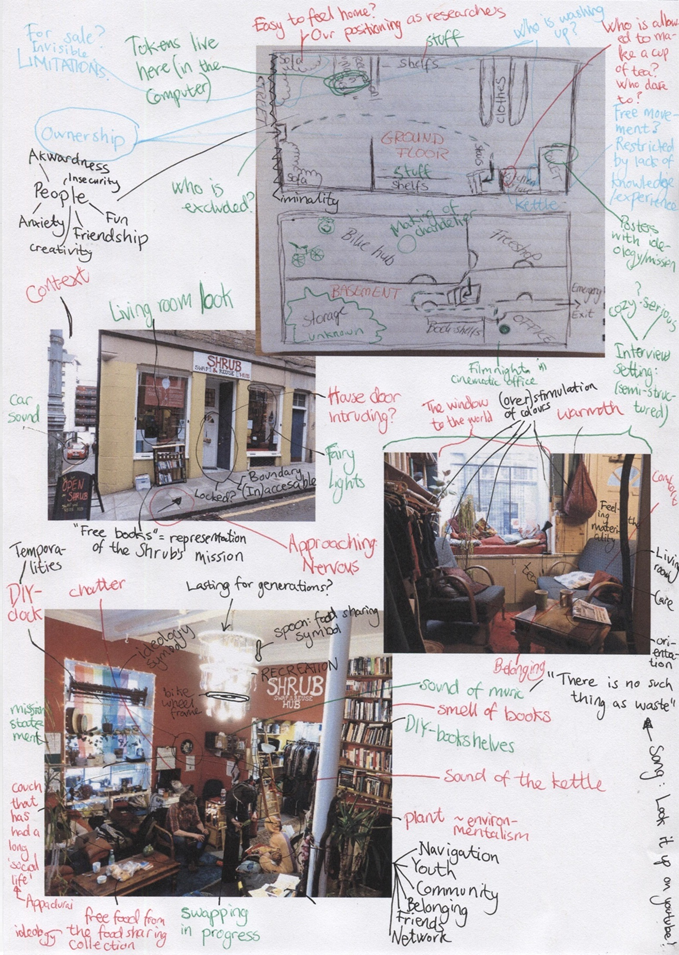 For sale?
Invisible
LIMITATIONS.
Tokens live
here (in the
computer)
Easy to feel home?
Our positioning as researchers
stuff
who is washing
up?
Who is allow
ed to ma-
ke a cup
of tea?
Who dare
to?
Ownership
Akwardness
Insecurity
People
Anxiety
Fun
Friendship
creativity
who is
excluded?
Liminality
STREET
Sofa
shelfs
clothes
GROUND
FLOOR
stuff
shelfs
Sofa
Kettle
Free move-
ment?
Restricted
by lack of
knowledge
/experience
Posters
with ide-
ology/mission
Blue hub
Making of
chandelier
Freeshop
BASEMENT
Storage
unknown
Book shelfs
OFFICE
Emergency
Exit
?
cozy-serious
Interview
setting:
(semi-struc-
tured)
Filmnights in
cinematic office
Context
Living room look
SHRUB
SWAP & REUSE HUB
Car
sound
OPEN
SHRUB
House door
intruding?
Fairy
lights
Locked?
Boundary
(In)accesable
"Free books" = representation
of the Shrub's mission
Approaching
Nervous
The window
to the world
(over)stimulation
of colours
warmth
Feel-
ing
the
materi-
ality
tea
Living
room
Care
orien-
tation
Belonging
"There is no such
thing as waste"
Song: Look it up on youtube!
Tempora-
lities
DIY-
clock
chatter
Lasting for generations?
ideology
symbol
spoon: food sharing
symbol
RECREATION
SHRUB
SWAP & REUSE
HUB
bike
wheel
frame
mission
state
ment
sound of music
smell of books
DIY-bookshelves
sound of the kettle
couch
that
has
had a
long
'social
life'
Appadurai
plant ~ environ-
mentalism
Navigation
Youth
Community
Belonging
Friends
Network
ideology
free food from
the food sharing
collection
swapping
in progress